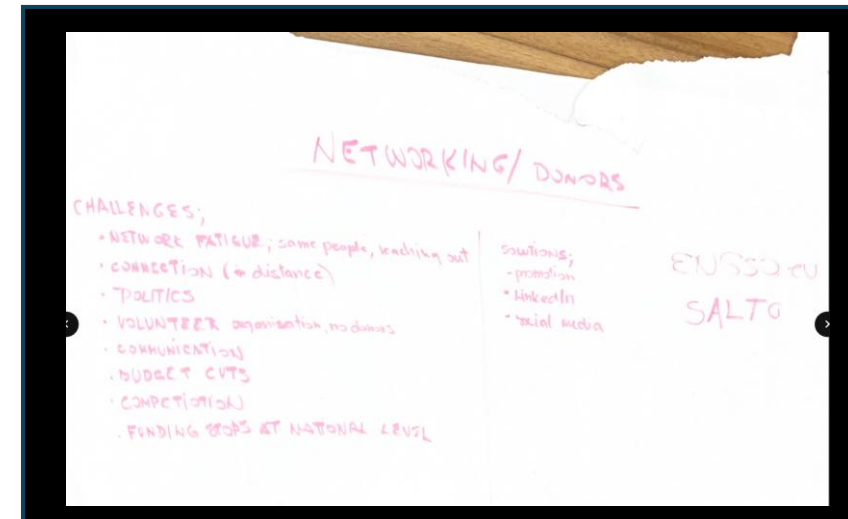 NETWORKING/ DONORS
CHALLENGES;
• NETWORK FATIGUE; same people, reaching out
• CONNECTION (+ distance)
• POLITICS
• VOLUNTEER organisation, no donors
• COMMUNICATION
• BUDGET CUTS
• COMPETIOTION
• FUNDING STOPS AT NATIONAL LEVEL
SOLUTIONS;
- promotion
• LinkedIn
- social media
SALTO